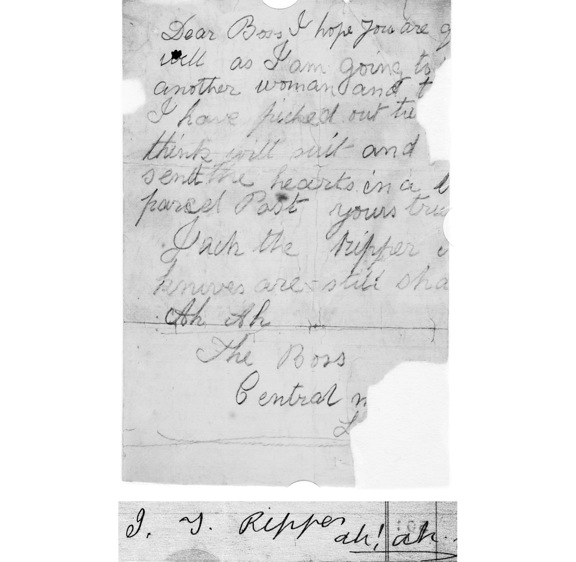 Dear Boss I hope you are g
well as I am going to
another woman and t
I have picked out
think will suit and
send the hearts in a b
parcel Post yours tru
Jack the Ripper
knives are still sha
Ah Ah
The Boss
Central n
L
J. T. Ripper
ah! ah